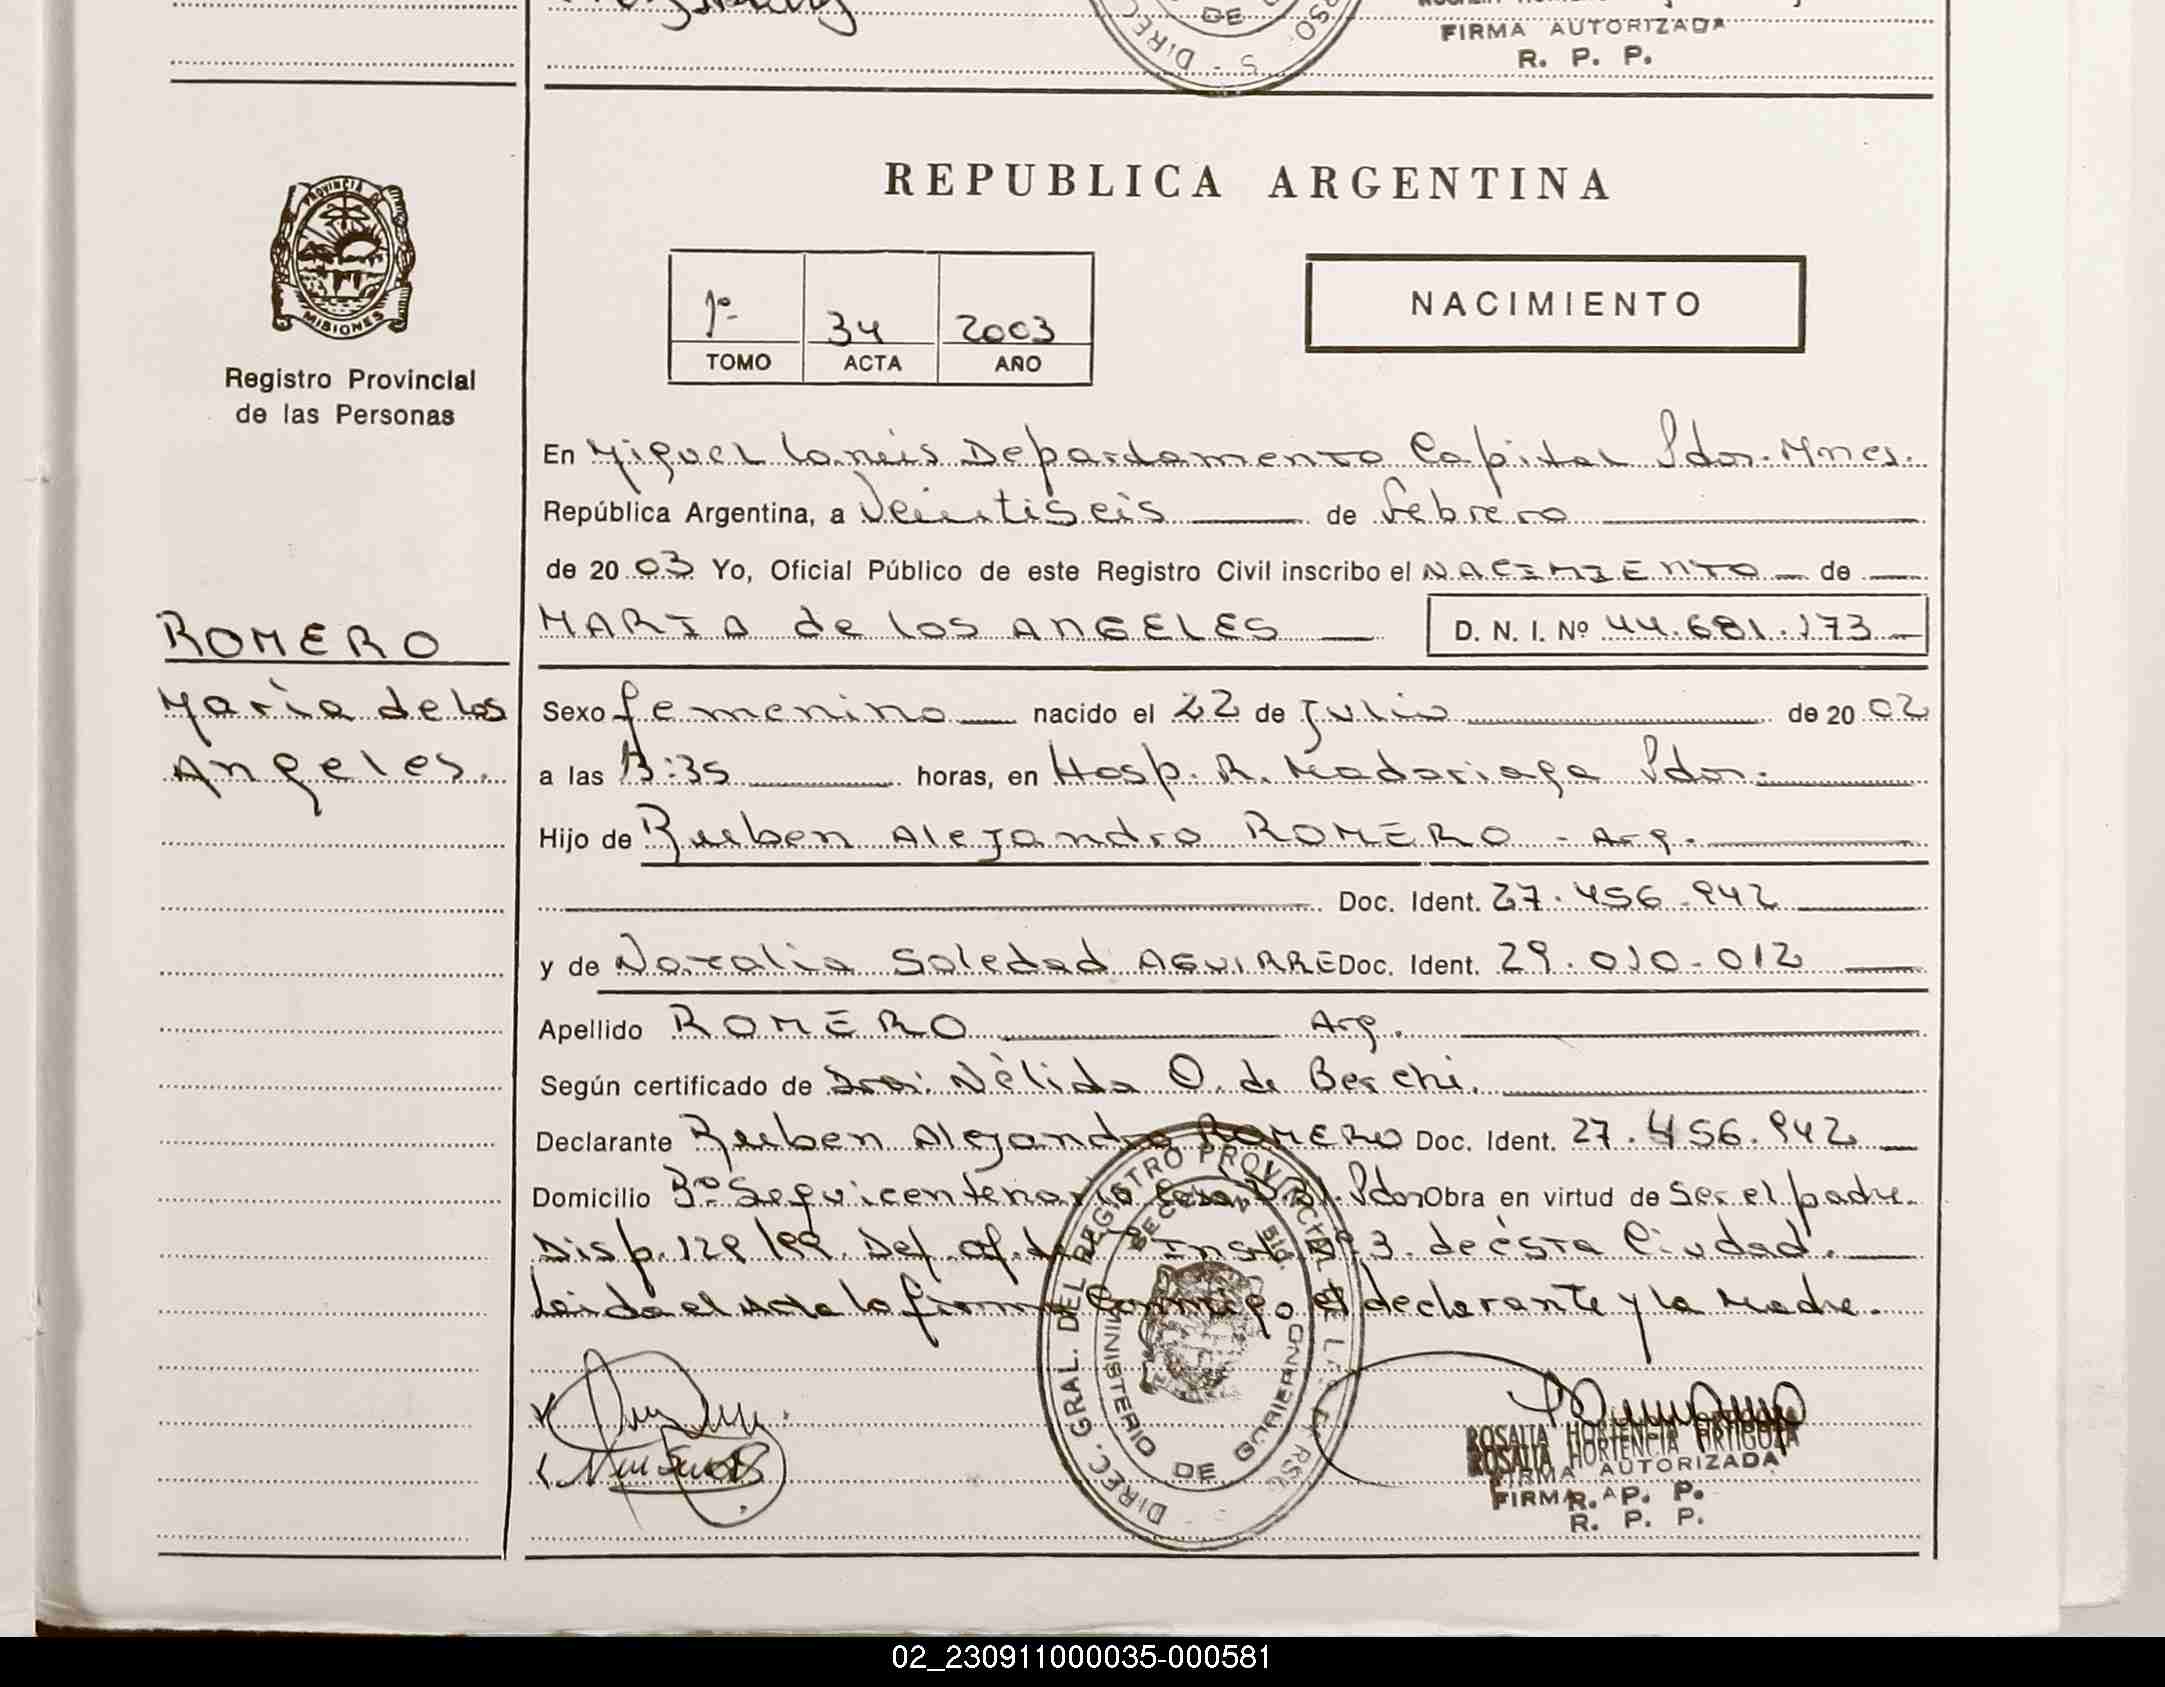 DE
DIREC
FIRMA AUTORIZADA
R. P. P.
PROVINCIA DE
MISIONES
Registro Provincial
de las Personas
REPUBLICA ARGENTINA
1º 34 2003
TOMO ACTA AÑO
NACIMIENTO
En Miguel Lanús Departamento Capital Pdas. Mnes.
República Argentina, a Veintiseis de Febrero
de 20 03 Yo, Oficial Público de este Registro Civil inscribo el NACIMIENTO de
MARIA de los ANGELES D. N. I. Nº 44.681.173
ROMERO
María de los
Angeles.
Sexo femenino nacido el 22 de Julio de 20 02
a las 13:35 horas, en Hosp. R. Madariaga Pdas.
Hijo de Ruben Alejandro ROMERO - Arg.
Doc. Ident. 27.456.942
y de Natalia Soledad AGUIRRE Doc. Ident. 29.010.012
Apellido ROMERO Arg.
Según certificado de Dra: Nèlida O. de Berchi.
Declarante Ruben Alejandro ROMERO Doc. Ident. 27.456.942
Domicilio Bº Sequicentenario Casa Pdas Obra en virtud de Ser el padre.
Disp. 129/99. Def. Of. de Inst. Nº 3. de èsta Ciudad.
Leida el Acta la firma conmigo el declarante y la Madre.
DIREC. GRAL. DEL REGISTRO PROVINCIAL DE LAS PERS
MINISTERIO DE GOBIERNO
ROSALIA HORTENCIA ORTIGOZA
ROSALIA HORTENCIA
FIRMA AUTORIZADA
FIRMA R. P. P.
R. P. P.
02_230911000035-000581